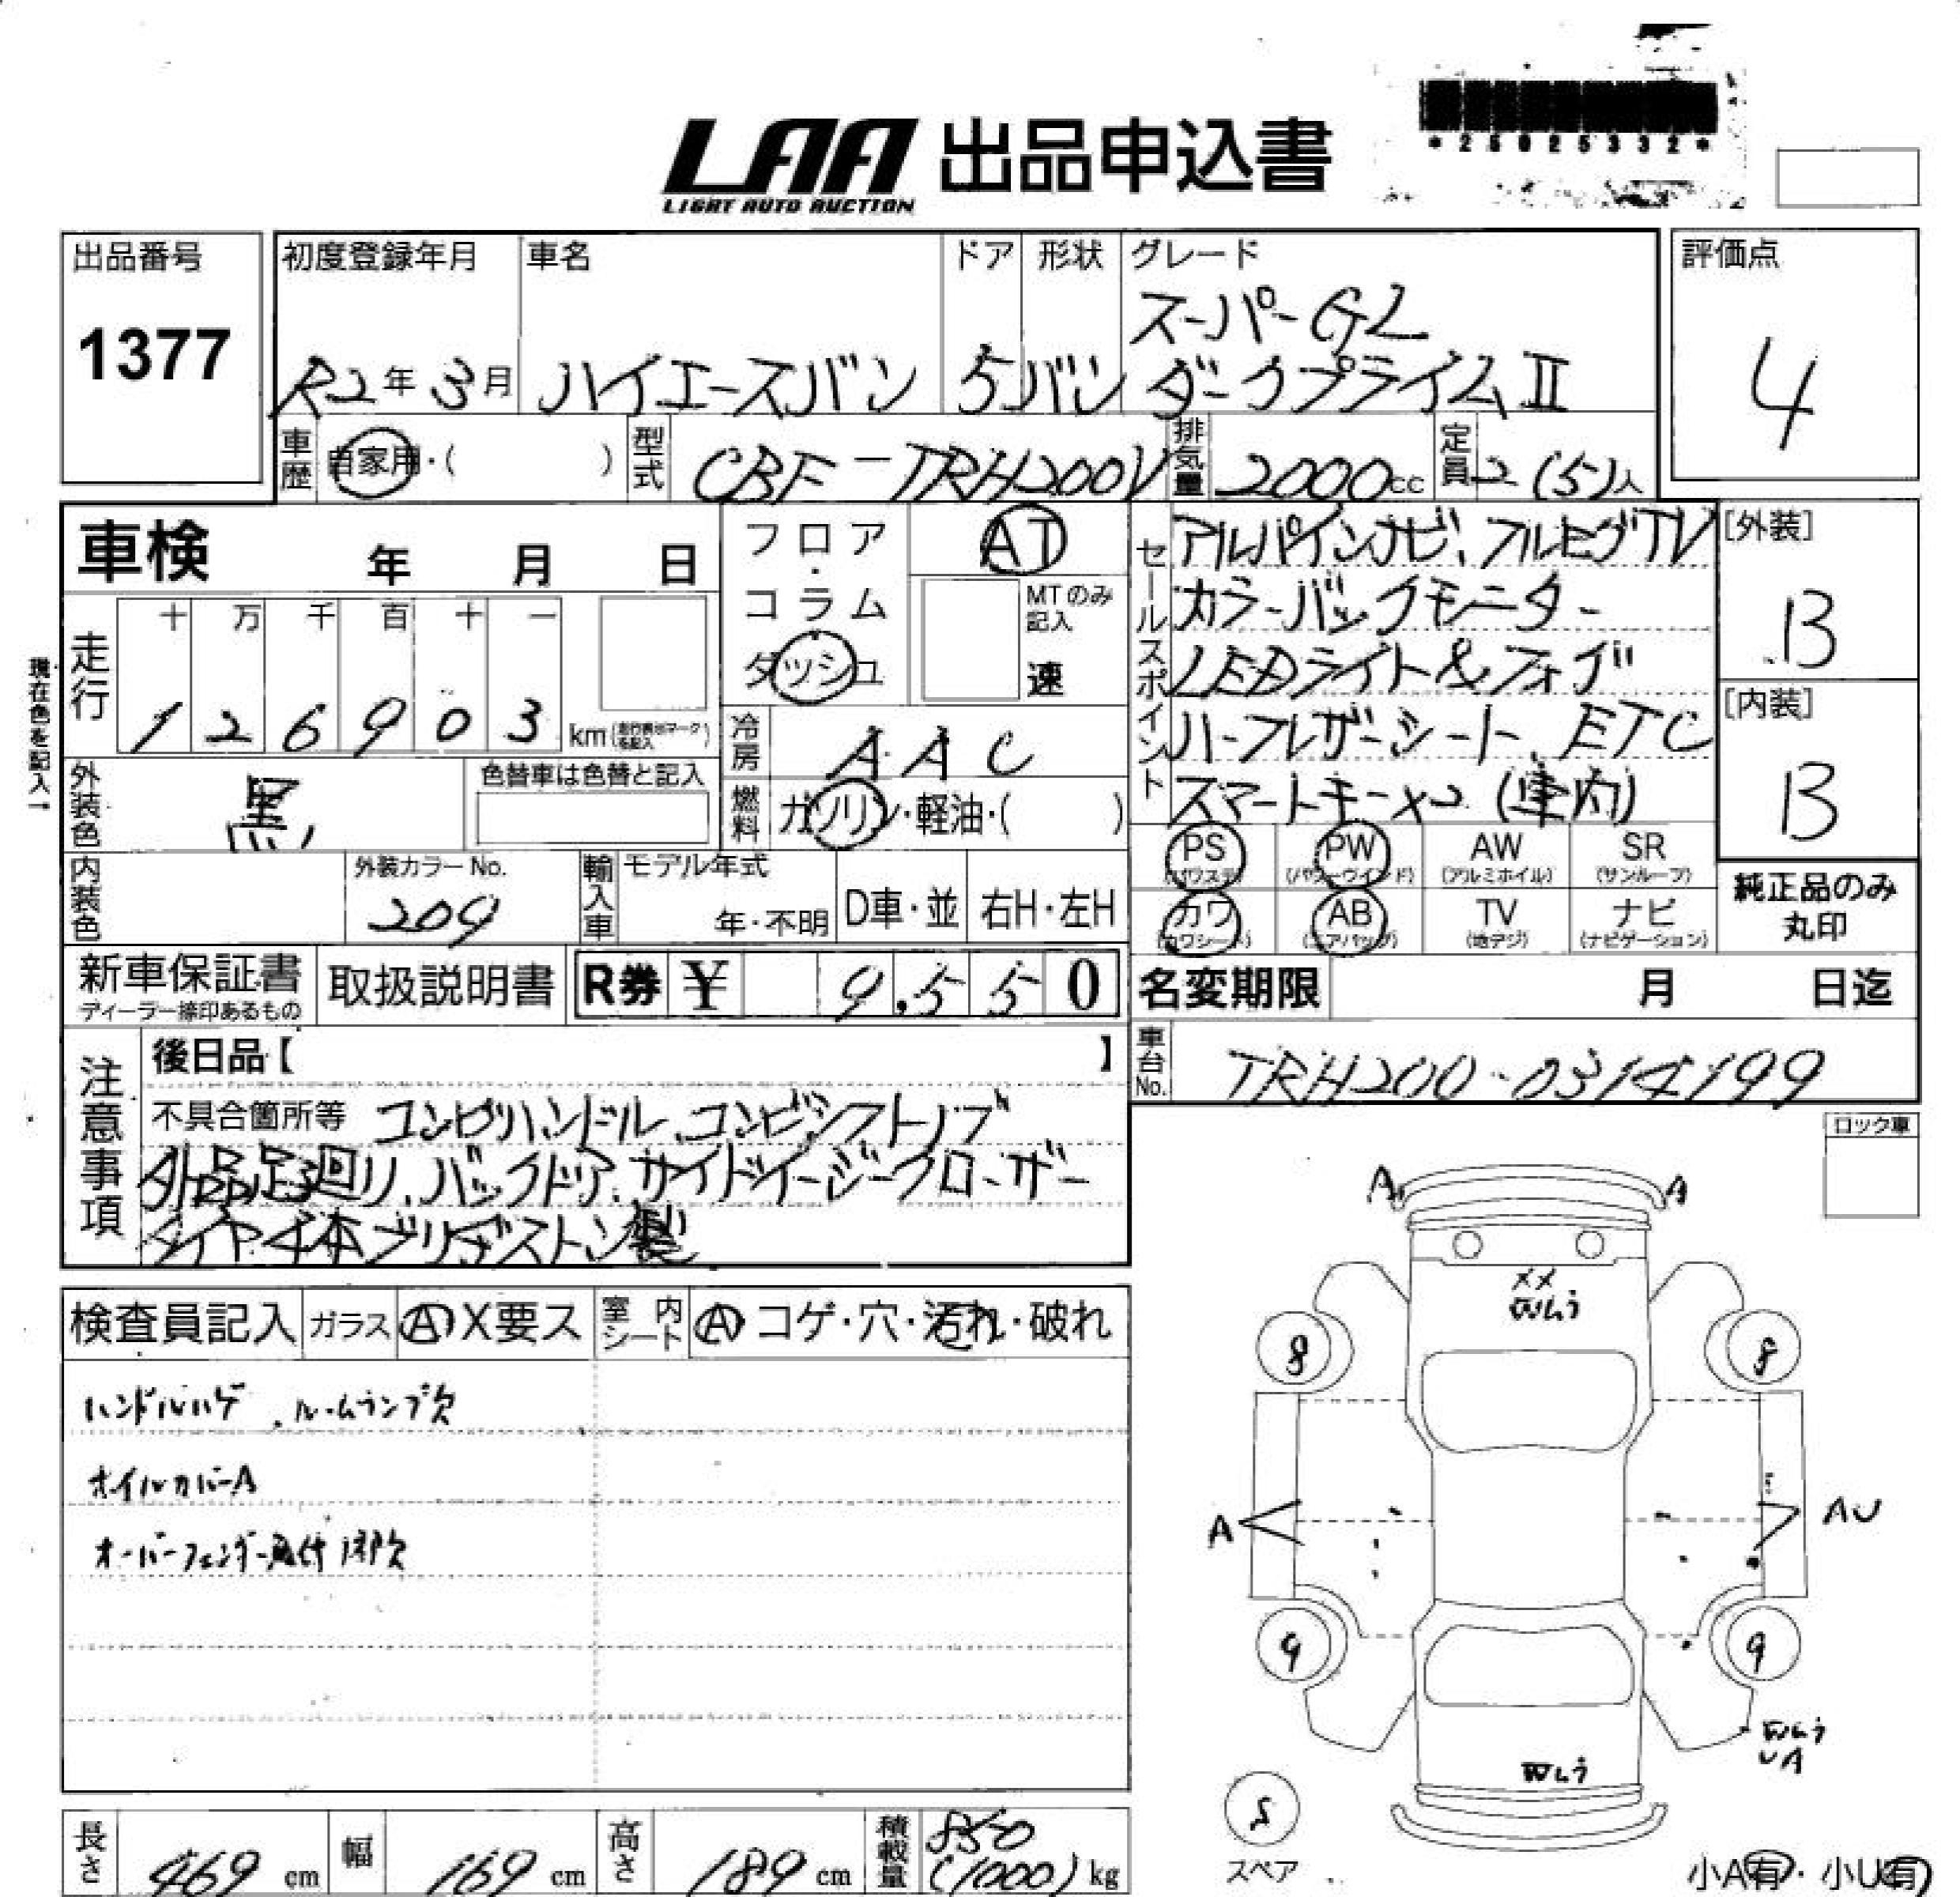 LAA 出品申込書
LIGHT AUTO AUCTION
*25025332*
出品番号
1377
初度登録年月
R2年3月
車名
ハイエースバン
ドア
5
形状
バン
グレード
スーパーGL
ダークプライムⅡ
評価点
4
車歴
自家用・( )
型式
CBF-TRH200V
排気量
2000cc
定員
2(5)人
車検 年 月 日
フロア・コラム
ダッシュ
AT
MTのみ記入
速
走行
十 万 千 百 十 一
1 2 6 9 0 3
km
現在色を記入→
冷房
AAC
外装色
黒
色替車は色替と記入
燃料
ガソリン・軽油・( )
内装色
外装カラーNo.
209
輸入車
モデル年式
年・不明
D車・並
右H・左H
セールスポイント
アルパインナビ、フルセグTV
カラーバックモニター
LEDライト&フォグ
ハーフレザーシート、ETC
スマートキー×2(車内)
[外装]
B
[内装]
B
PS
(パワステ)
PW
(パワーウインド)
AW
(アルミホイル)
SR
(サンルーフ)
カワ
(カワシート)
AB
(エアバッグ)
TV
(地デジ)
ナビ
(ナビゲーション)
純正品のみ
丸印
新車保証書
ディーラー捺印あるもの
取扱説明書
R券 ¥ 9,550
名変期限 月 日迄
車台No.
TRH200-0314199
注意事項
後日品【 】
不具合箇所等 コンビハンドル、コンビシフトノブ
外品足回り、バックドア、サイドイージークローザー
タイヤ4本ブリヂストン製
ロック車
検査員記入
ガラス
A X要ス
室内シート
A コゲ・穴・汚れ・破れ
ハンドルハゲ、ルームランプ欠
ホイルカバーA
オーバーフェンダー取付
A
A
XX
8
8
A
AU
9
9
UA
S
スペア
小A有・小U有
長さ
469cm
幅
169cm
高さ
189cm
積載量
850
(1000)kg